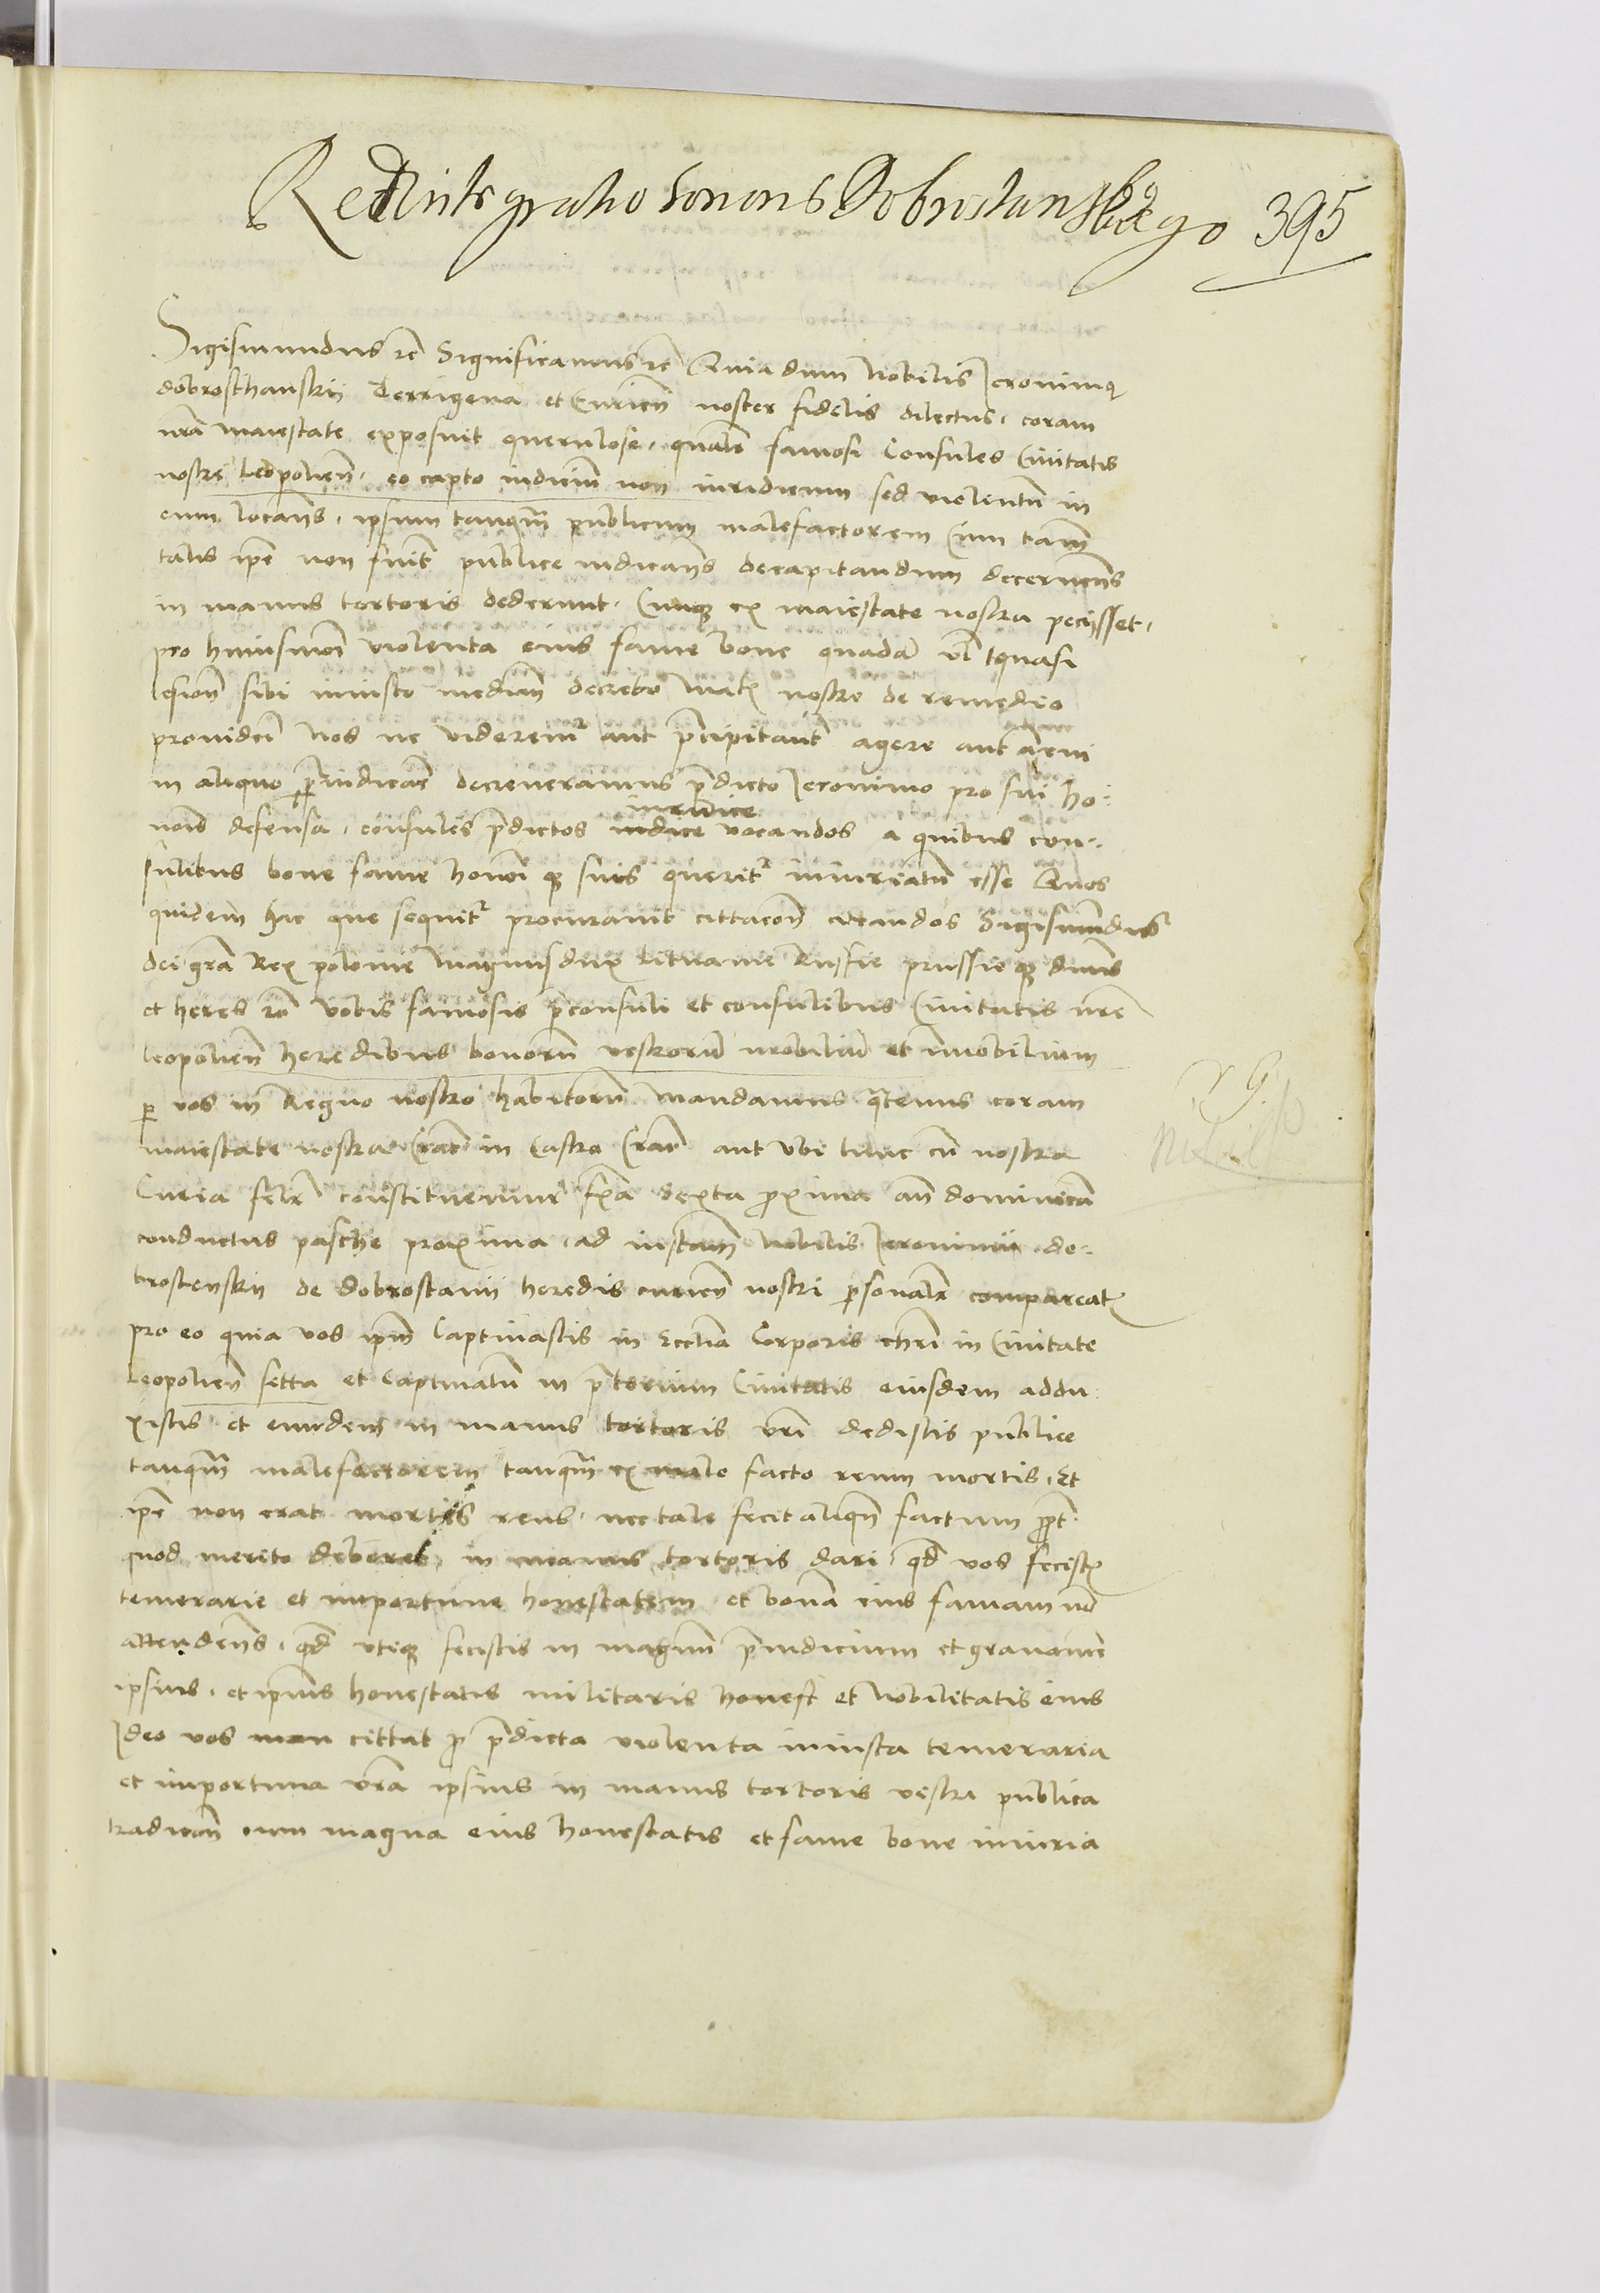 Redintegratio honoris Dobrostanskego 395
Sigismundus rc̄ Significamus rc̄ Quia dum Nobilis Jeronimus
dobrosthanskij Terrigena et Curien̄ noster fidelis dilectus, coram
nr̄a maiestate exposuit querulose, qualr̄ famosi Consules Civitatis
nostre leopolien̄, eo capto iudiciū non iuridicum sed violentū in
eum locan̄s, ipsum tanqm̄ publicum malefactorem Cum tam̄
talis ip̄e non fuit publice iudican̄s decapitandum decernen̄s
in manus tortoris dederunt. Cumq ex maiestate nostra peciisset,
pro huiusmōi violenta eius fame bone quadā vl̄ quasi
lesion̄ sibi iniusto mediū decreto Mat̄ nostre de remedio
provideri Nos ne videremr̄ aut p̄cipitant̄ agere aut
in aliquo p̄iudicar̄ decreveramus p̄dicto Jeronimo pro sui ho-
nōis defensa, consules p̄dictos iuridice vocandos a quibus con-
sulibus bone fame honōi q suis querit̄ iniuriatū esse Quos
quidem hac que sequit̄ procuravit cittacōn̄ citandos Sigismūdus
dei grā Rex polonie Magnus dux Lituanie Russie prussie q dn̄us
et heres rc̄ vobis famosis p̄consuli et consulibus Civitatis nr̄e
leopolien̄ heredibus bonorū vestrorū mobiliū et īmobilium
p vos in Regno nostro habitorū Mandamus q̄tenus coram
maiestate nostra Crac̄ in Castro Crac̄ aut ubi tunc cū nostra
Curia felr̄ constituemur fr̄ia sexta proxima an̄ dominicā
conductus pasche proxima, ad instan̄ Nobilis Jeronimi do-
brostenskij de dobrostanij heredis curien̄ nostri p̄sonalr̄ compareatis
pro eo quia vos ip̄m Captivastis in Ecclīa Corporis chrī in Civitate
leopolien̄ setta et Captivatū in p̄torium Civitatis eiusdem addu-
xistis et eundem in manus tortoris vr̄i dedistis publice
tanqm̄ malefactorem tanqm̄ ex malo facto reum mortis, Et
ip̄e non erat mortis reus, nec tale fecit aliqd̄ factum prop̄t
quod merito deberet in manus tortoris dari, qd̄ vos fecistis
temerarie et importune honestatem et bonā eius famam nō
attenden̄s, qd̄ utiq fecistis in magnū p̄iudicium et gravamē
ipsius, et ip̄ius honestatis militaris honest̄ et Nobilitatis eius
Ideo vos man cittat p̄ p̄dicta violenta iniusta temeraria
et importuna vr̄a ipsius in manus tortoris vestri publica
tradicōn̄ cum magna eius honestatis et fame bone iniuria